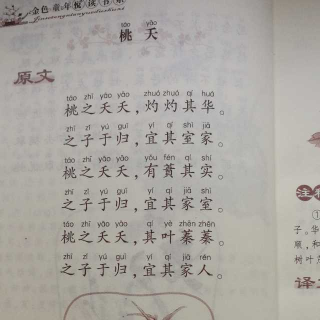 金色童年悦读书系
táo yāo
桃 夭
原文
táo zhī yāo yāo zhuó zhuó qí huá
桃之夭夭,灼灼其华。
zhī zǐ yú guī yí qí shì jiā
之子于归,宜其室家。
táo zhī yāo yāo yǒu fén qí shí
桃之夭夭,有蕡其实。
zhī zǐ yú guī yí qí jiā shì
之子于归,宜其家室。
táo zhī yāo yāo qí yè zhēn zhēn
桃之夭夭,其叶蓁蓁。
zhī zǐ yú guī yí qí jiā rén
之子于归,宜其家人。
注
①
子。华
顺,和
树叶
译